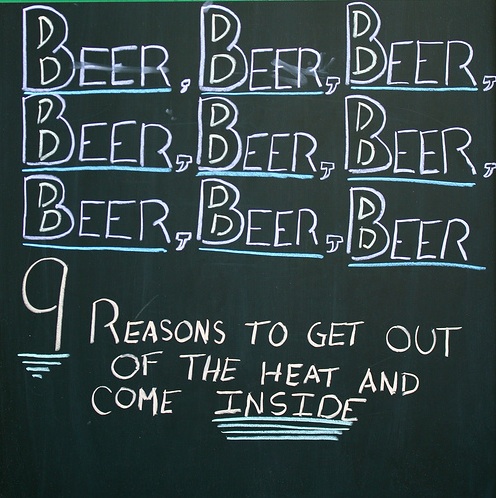 BEER, BEER, BEER,
BEER, BEER, BEER,
BEER, BEER, BEER
9 REASONS TO GET OUT
OF THE HEAT AND
COME INSIDE